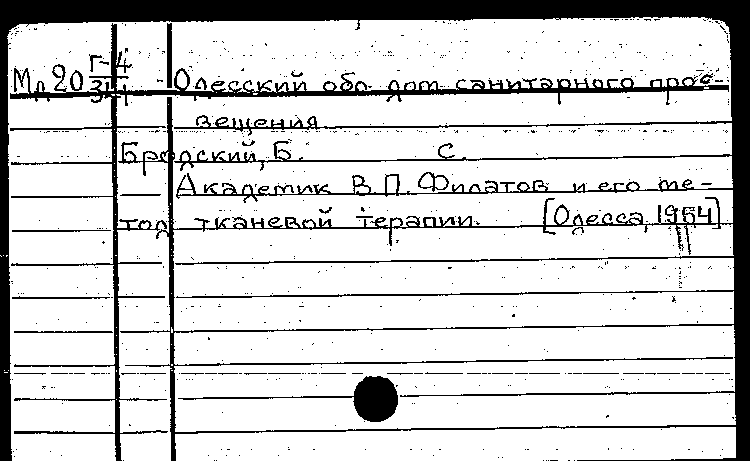 Мд20 Г-4
Одесский обл. дом санитарного прос-
вещения
Бродский, Б. С.
Академик В.П. Филатов и его ме-
тод тканевой терапии. [Одесса, 1954]